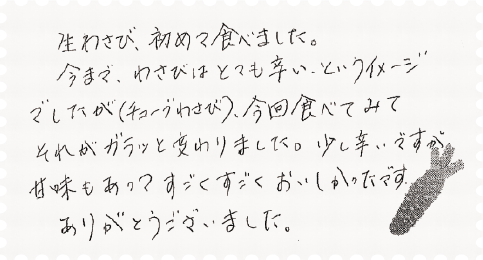 生わさび、初めて食べました。
今まで、わさびはとても辛い、というイメージ
でしたが(チューブわさび)、今回食べてみて
それがガラッと変わりました。少し辛いですが
甘味もあってすごくすごくおいしかったです。
ありがとうございました。